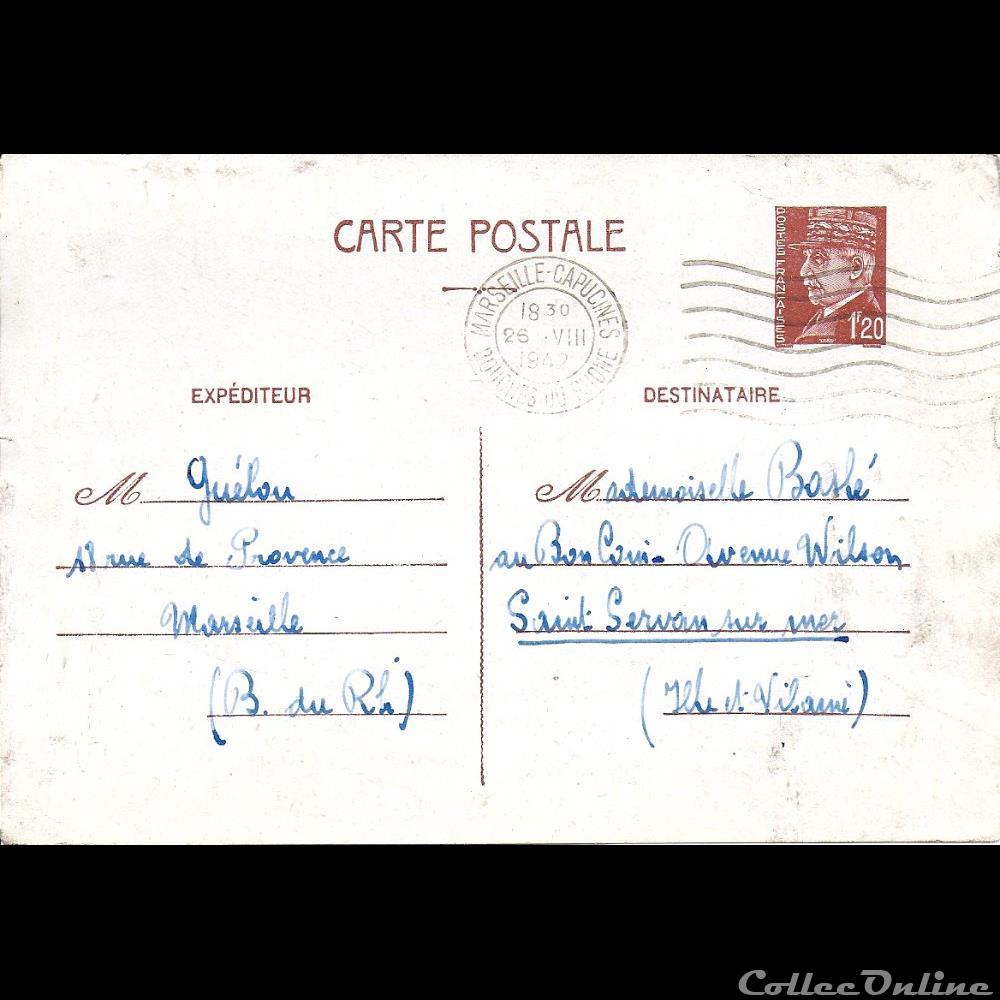 CARTE POSTALE
POSTES FRANÇAISES
1F20
MARSEILLE-CAPUCINES
18 30
26 · VIII
1942
BOUCHES DU RHONE
EXPÉDITEUR
DESTINATAIRE
M Guélou
18 rue de Provence
Marseille
(B. du Rh)
Mademoiselle
au Bon Coin - Avenue Wilson
Saint-Servan sur mer
(Ille et Vilaine)
CollecOnline